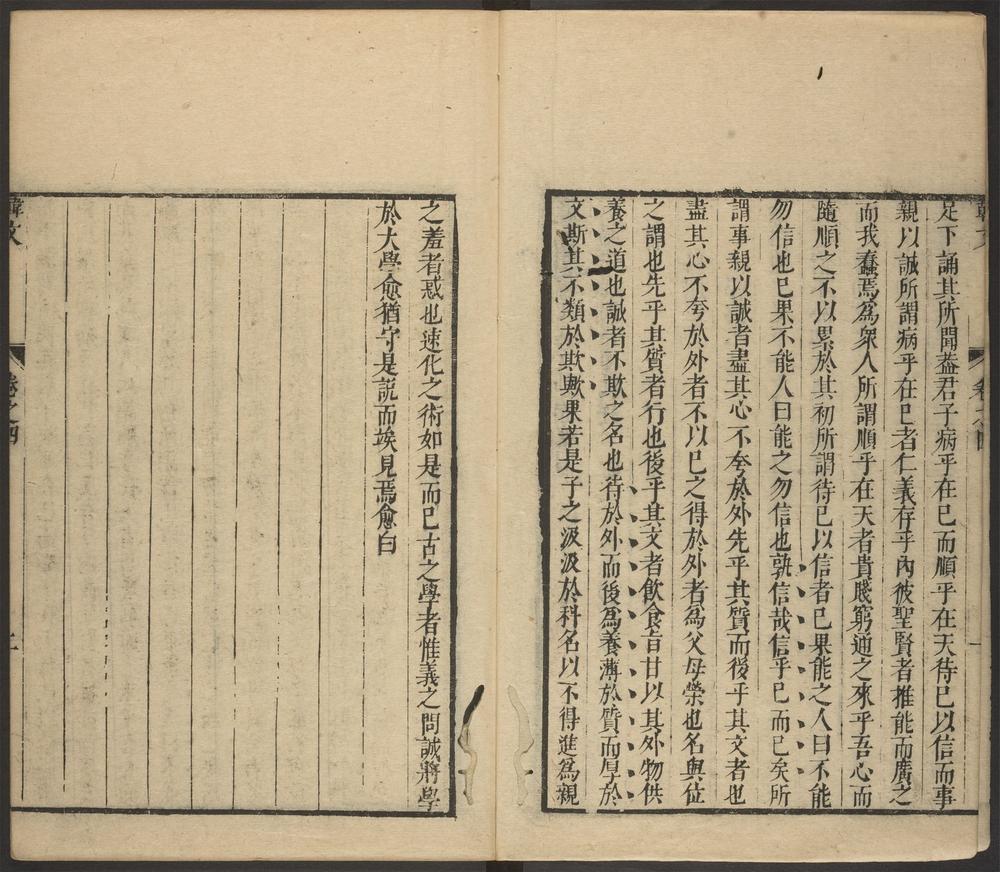 韓文
卷之四
足下誦其所聞蓋君子病乎在已而順乎在天待已以信而事
親以誠所謂病乎在已者仁義存乎內彼聖賢者推能而廣之
而我蠢焉為衆人所謂順乎在天者貴賤窮通之來乎吾心而
隨順之不以累於其初所謂待已以信者已果能之人曰不能
勿信也已果不能人曰能之勿信也孰信哉信乎已而已矣所
謂事親以誠者盡其心不夸於外先乎其質而後乎其文者也
盡其心不夸於外者不以已之得於外者為父母榮也名與位
之謂也先乎其質者行也後乎其文者飲食旨甘以其外物供
養之道也誠者不欺之名也待於外而後為養薄於質而厚於
文斯其不類於欺歟果若是子之汲汲於科名以不得進為親
之羞者惑也速化之術如是而已古之學者惟義之問誠將學
於大學愈猶守是說而竢見焉愈白
韓文
卷之四